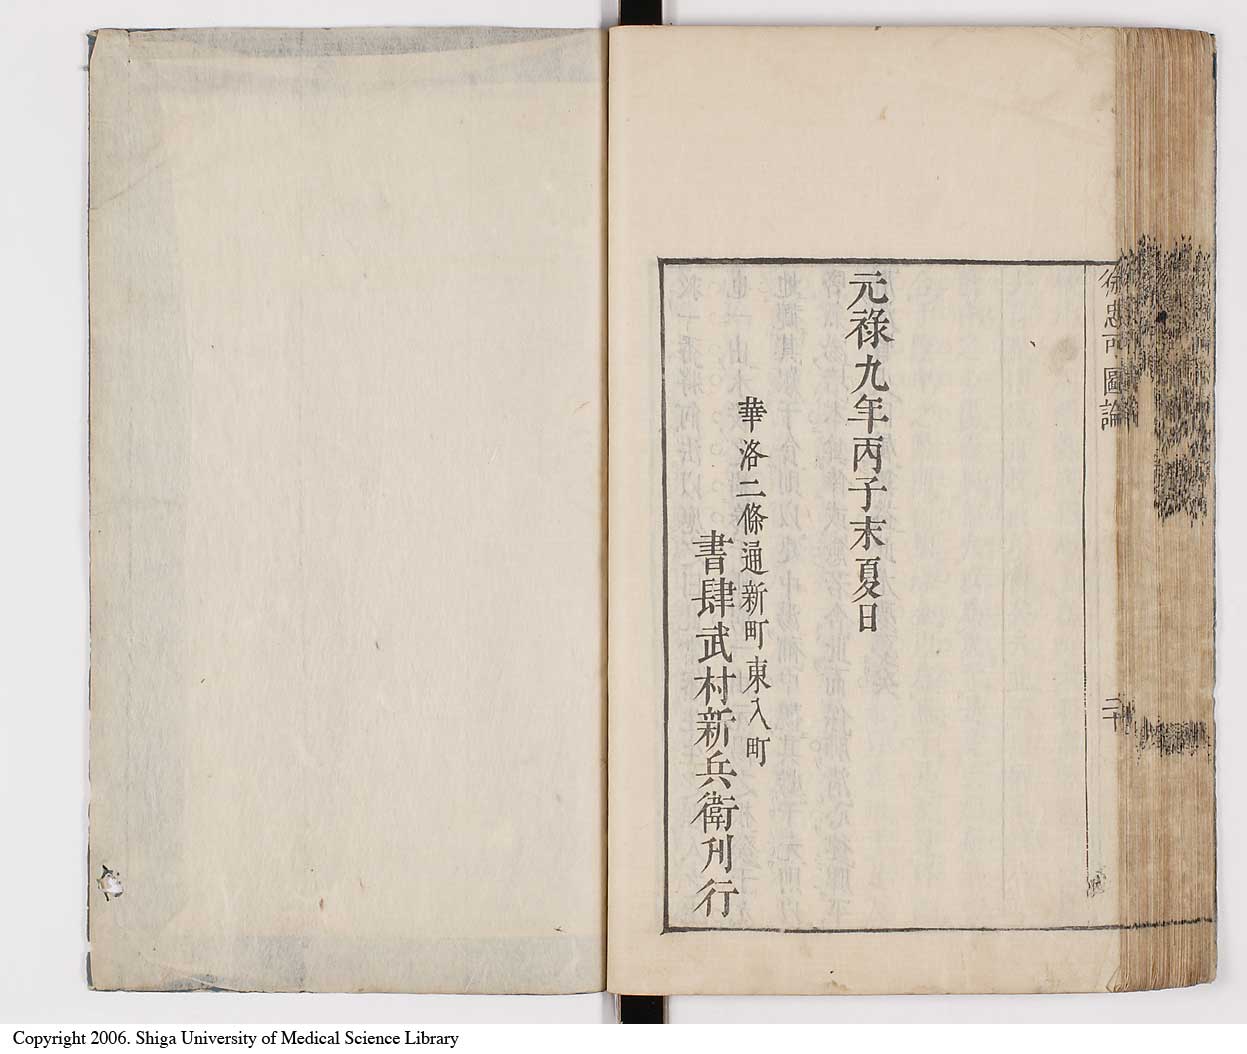 徐忠可圖論
二十
元祿九年丙子末夏日
華洛二條通新町東入町
書肆武村新兵衛刋行
Copyright 2006. Shiga University of Medical Science Library